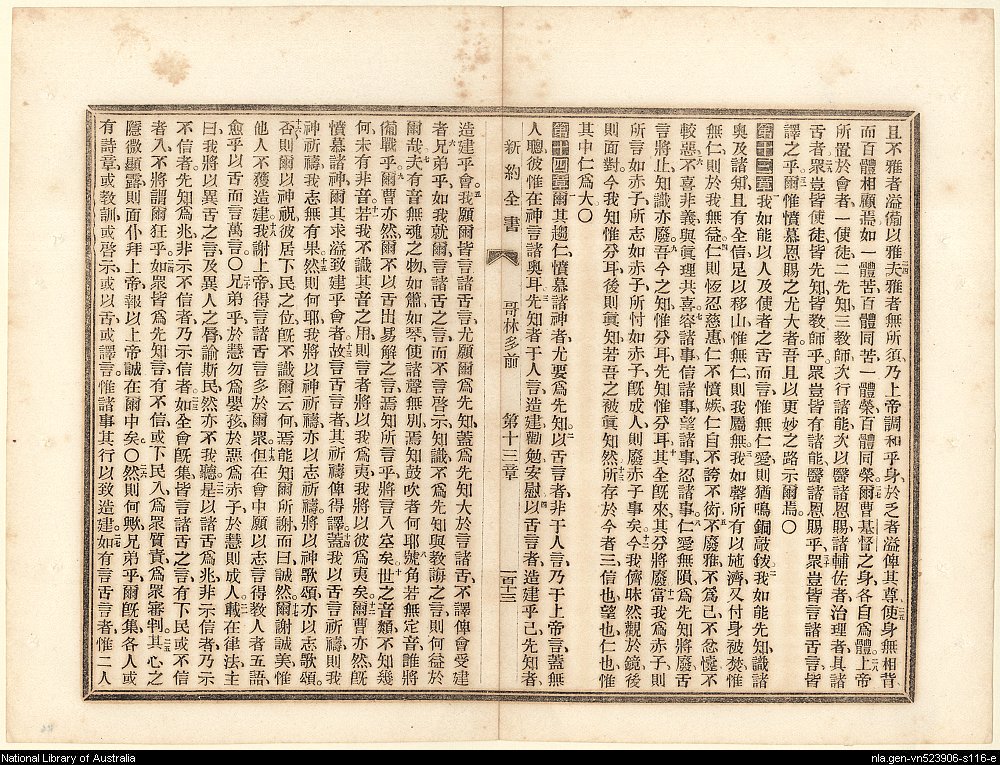 且不雅者溢備以雅夫雅者無所須乃上帝調和乎身於乏者溢俾其尊使身無相背
而百體相顧焉如一體苦百體同苦一體榮百體同榮爾曹基督之身各自爲體上帝
所置於會者一使徒二先知三教師次行諸能次以醫諸恩賜諸輔佐者治理者具諸
舌者衆豈皆使徒皆先知皆教師乎衆豈皆有諸能醫諸恩賜乎衆豈皆言諸舌言皆
譯之乎爾惟憤慕恩賜之尤大者吾且以更妙之路示爾焉〇
第十三章我如能以人及使者之舌而言惟無仁愛則猶鳴銅敲鈸我如能先知識諸
奧及諸知且有全信足以移山惟無仁則我屬無我如罄所有以施濟又付身被焚惟
無仁則於我無益仁則恆忍慈惠仁不憤嫉仁自不誇不衒不廢雅不爲己不忿懥不
較惡不喜非義與眞理共喜容諸事信諸事望諸事忍諸事仁愛無隕爲先知將廢舌
言將止知識亦廢吾今之知惟分耳先知惟分耳其全旣來其分將廢當我爲赤子則
所言如赤子所志如赤子所忖如赤子旣成人則廢赤子事矣今我儕昧然觀於鏡後
則面對今我知惟分耳後則眞知若吾之被眞知然所存於今者三信也望也仁也惟
其中仁爲大〇
第十四章爾其趨仁憤慕諸神者尤要爲先知以舌言者非于人言乃于上帝言蓋無
人聰彼惟在神言諸奧耳先知者于人言造建勸勉安慰以舌言者造建乎己先知者
新約全書 哥林多前 第十三章 一百十三
造建乎會我願爾皆言諸舌言尤願爾爲先知蓋爲先知大於言諸舌不譯俾會受建
者兄弟乎如我就爾言諸舌之言而不言啓示知識不爲先知與教誨之言則何益於
爾哉夫有音無魂之物如簫如琴使諸聲無別焉知鼓吹者何耶號角若無定音誰將
備戰乎爾曹亦然爾不以舌出易解之言焉知所言乎將言入空矣世之音類不知幾
何未有非音若我不識其音之用則言者將以我爲夷我將以彼爲夷矣爾曹亦然旣
憤慕諸神爾其求溢致建乎會者故言舌言者其祈禱俾得譯蓋我以舌言祈禱則我
神祈禱我志無有果然則何耶我將以神祈禱亦以志祈禱將以神歌頌亦以志歌頌
否則爾以神祝彼居下民之位旣不識爾云何焉能知爾所謝而曰誠然爾謝誠美惟
他人不獲造建我謝上帝得言諸舌言多於爾衆但在會中願以志言得教人者五語
愈乎以舌而言萬言〇兄弟乎於慧勿爲嬰孩於惡爲赤子於慧則成人載在律法主
曰我將以異舌之言及異人之脣諭斯民然亦不我聽是以諸舌爲兆非示信者乃示
不信者先知爲兆非示不信者乃示信者如全會旣集皆言諸舌之言有下民或不信
者入不將謂爾狂乎如衆皆爲先知言有不信或下民入爲衆質責爲衆審判其心之
隱微顯露則面仆拜上帝報以上帝誠在爾中矣〇然則何歟兄弟乎爾旣集各人或
有詩章或教訓或啓示或以舌或譯言惟諸事其行以致造建如有言舌言者惟二人
National Library of Australia
nla.gen-vn523906-s116-e